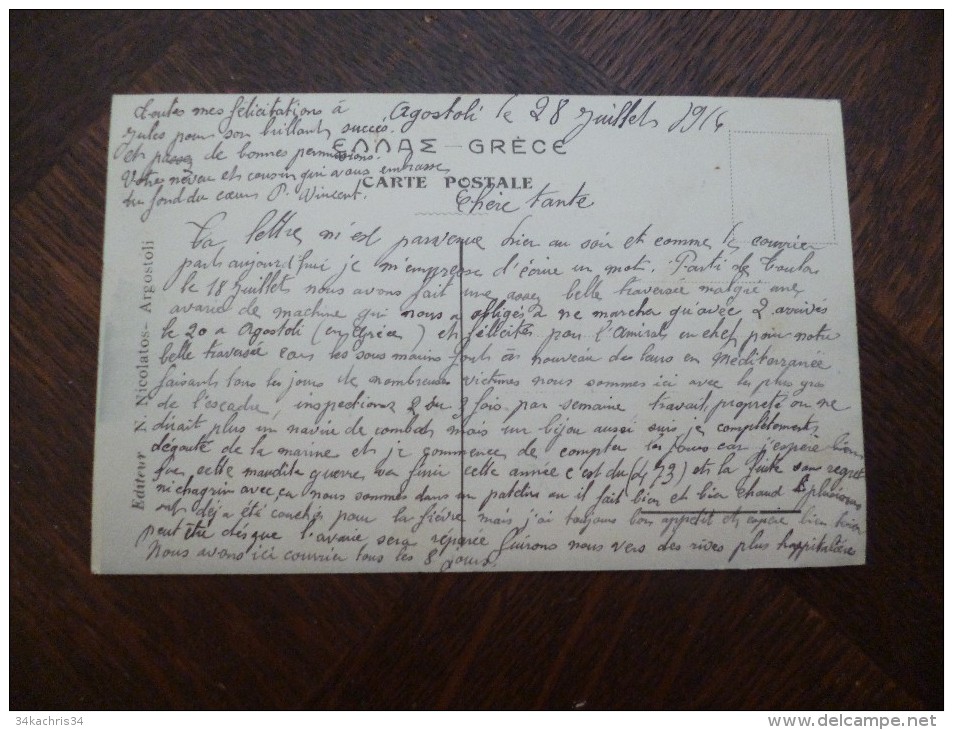 Agostoli le 28 Juillet 1916
ΕΛΛΑΣ - GRÈCE
CARTE POSTALE
Chère tante
Ta lettre m'est parvenue hier au soir et comme le courrier
part aujourd'hui je m'empresse d'écrire un mot. Parti de Toulon
le 18 Juillet nous avons fait une assez belle traversée malgré une
avarie de machine qui nous a obligés à ne marcher qu'avec 2 arrivés
le 20 a Agostoli (en Grèce) et félicités par l'Amiral en chef pour notre
belle traversée car les sous marins font à nouveau des leurs en Méditerranée
faisant tous les jours de nombreuses victimes nous sommes ici avec le plus gros
de l'escadre, inspections 2 ou 3 fois par semaine travail, propreté on ne
dirait plus un navire de combat mais un bijou aussi suis je complètement
dégouté de la marine et je commence de compter les jours car j'espère bien
que cette maudite guerre va finir cette année c'est du ( ) et la fuite sans regret
ni chagrin avec ça nous sommes dans un patelin ou il fait bien et bien chaud plusieurs
ont déja été couchés pour la fièvre mais j'ai toujours bon appétit et espère bien
peut être dès que l'avarie sera réparée fuirons nous vers des rives plus hospitalières
Nous avons ici courrier tous les 8 jours.
Toutes mes félicitations à
Jules pour son brillant succès.
et passez de bonnes permissions.
Votre neveu et cousin qui vous embrasse
du fond du coeur P. Vincent.
Editeur N. Nicolatos - Argostoli
34kachris34
delcampe.net